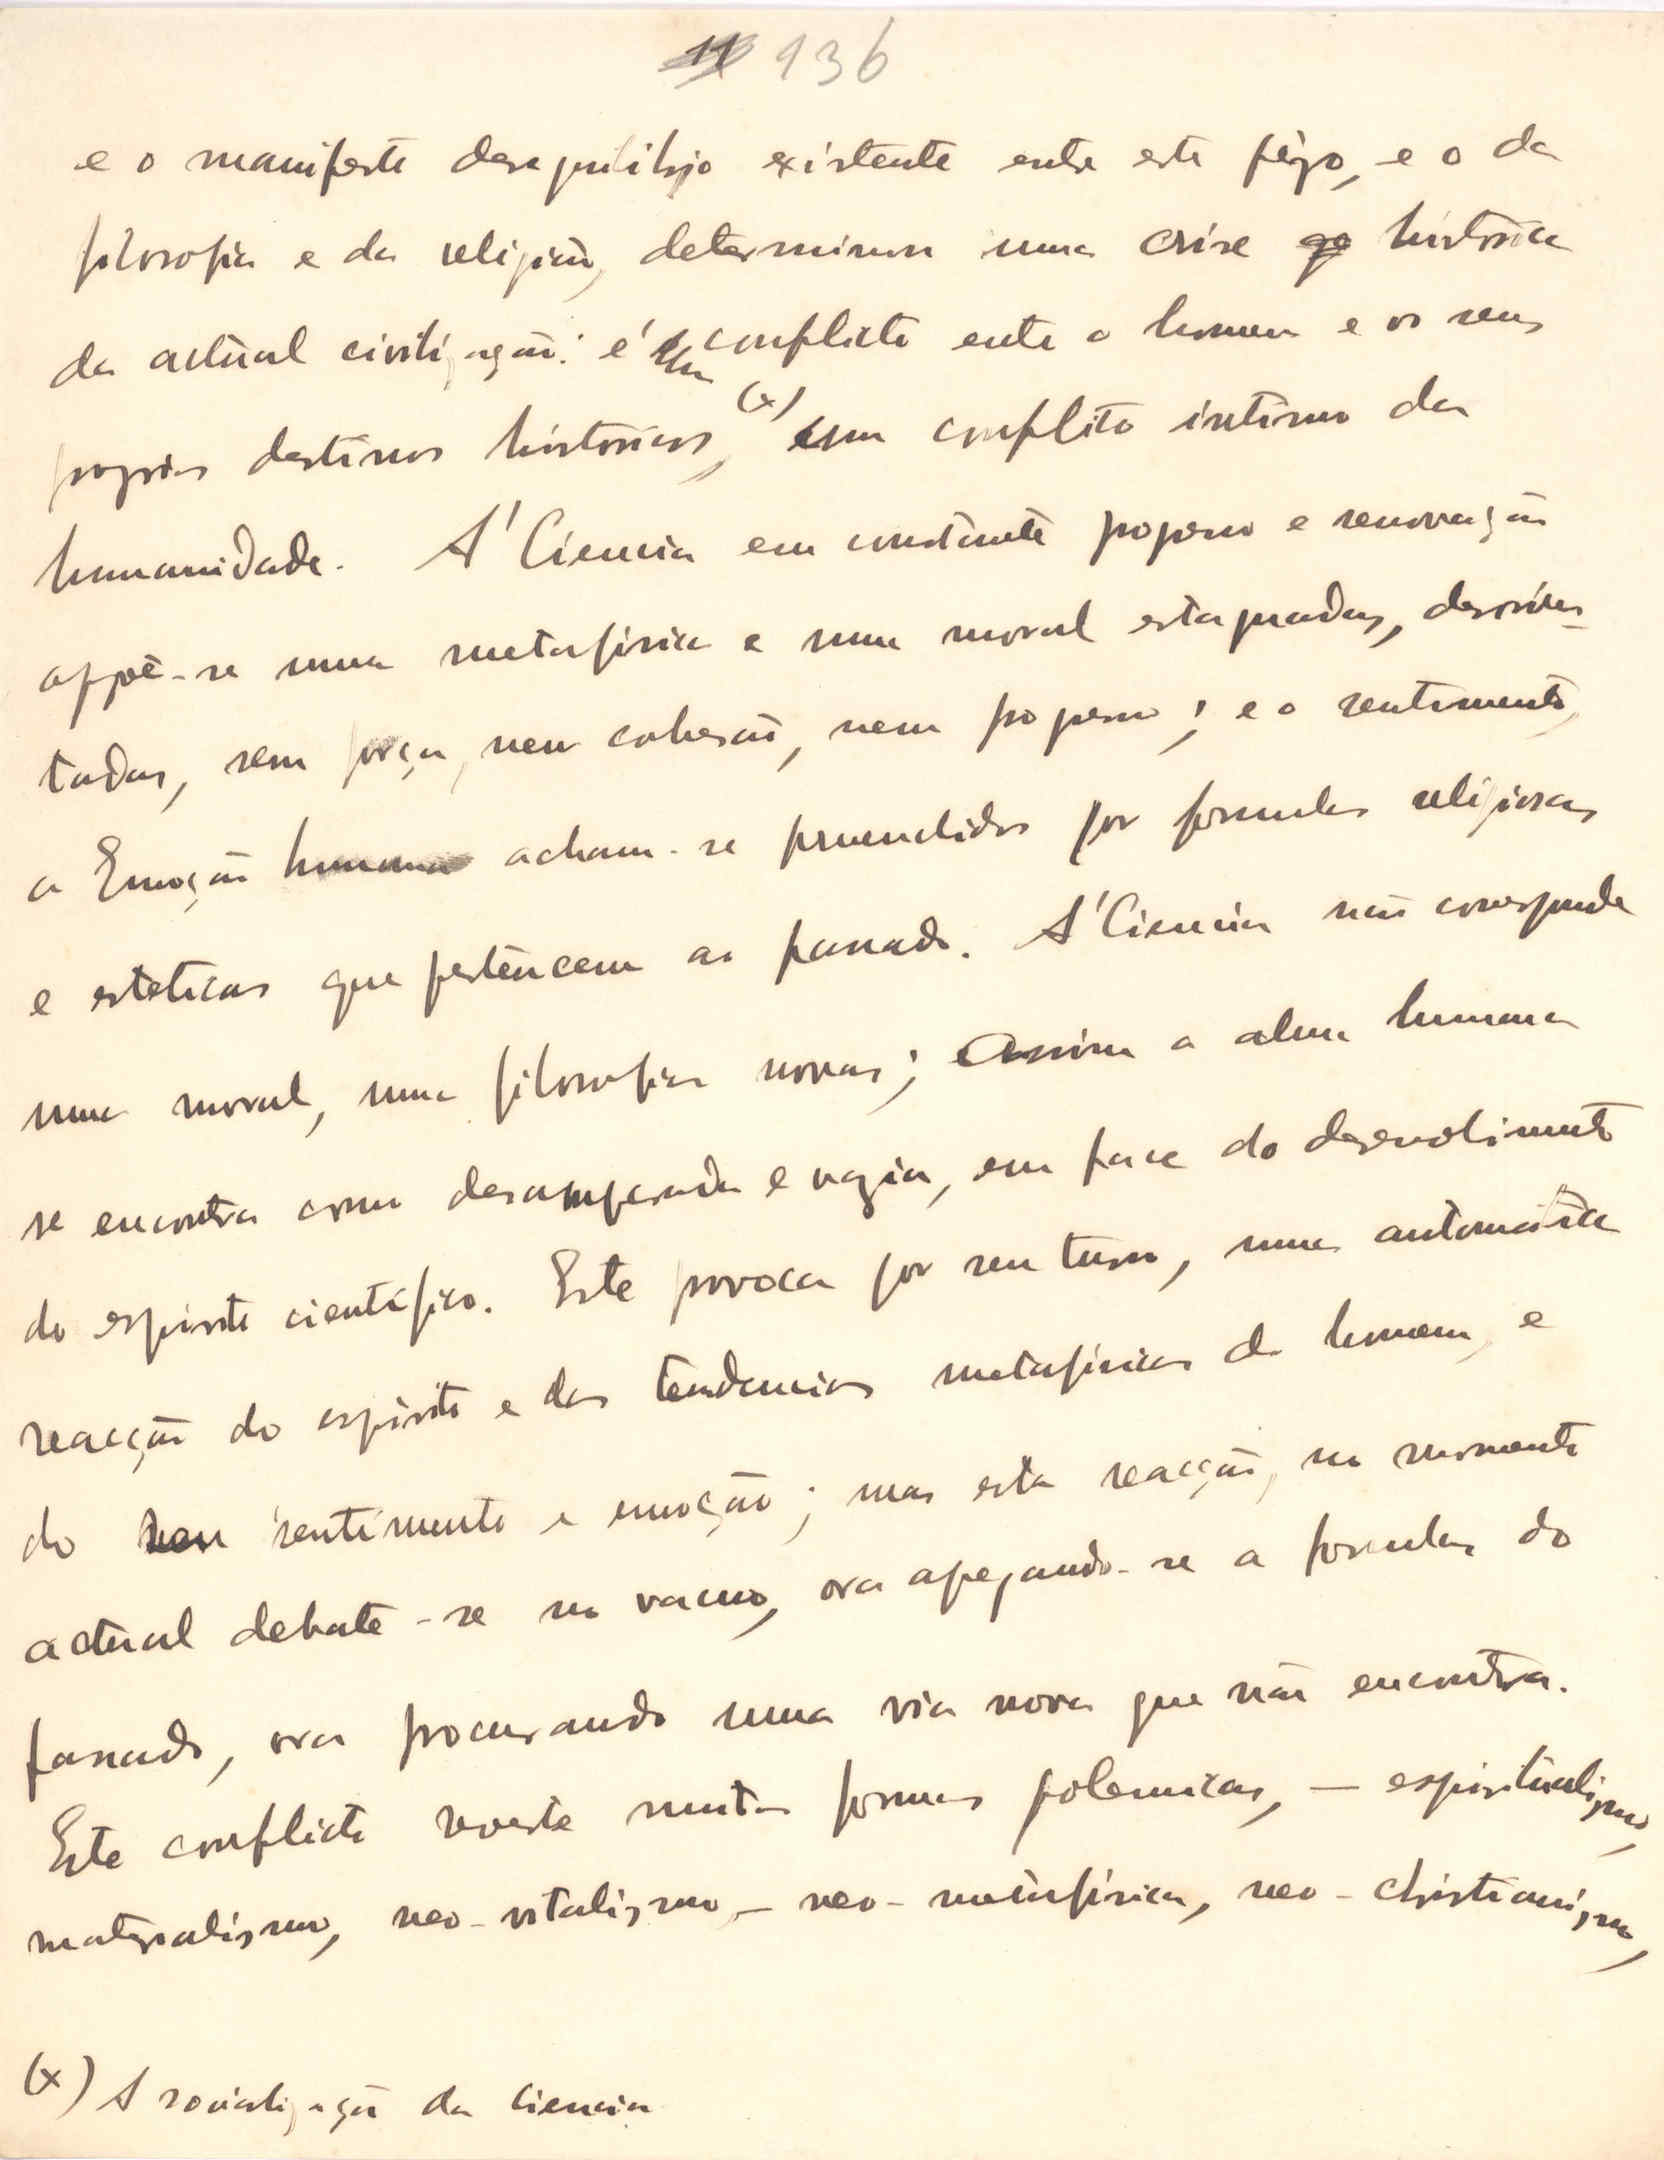 136
e o manifesto desequilibrio existente entre este e o da
filosofia e da religião, determinou uma crise historica
da actual civilização: é um conflicto entre o homem e os seus
proprios destinos historicos, (x) um conflito intimo da
humanidade. A' Ciencia em constante progresso e renovação
oppõe-se uma metafisica e uma moral estagnadas, desorien-
tadas, sem força, nem cohesão, nem progresso; e o sentimento,
a Emoção humana acham-se prehendidos por formulas religiosas
e esteticas que pertencem ao passado. A' Ciencia não corresponde
uma moral, uma filosofia novas; Assim a alma humana
se encontra como desamparada e vazia, em face do desenvolvimento
do espirito cientifico. Este provoca por seu turno, uma automatica
reacção do espirito e das tendencias metafisicas do homem, e
do seu sentimento e emoção; mas esta reacção, no momento
actual debate-se no vacuo, ora apegando-se a formulas do
passado, ora procurando uma via nova que não encontra.
Este conflicto reveste muitas formas polemicas, — espiritualismo,
materialismo, neo-vitalismo, — neo-metafisica, neo-christianismo,
(x) A socialização da ciencia